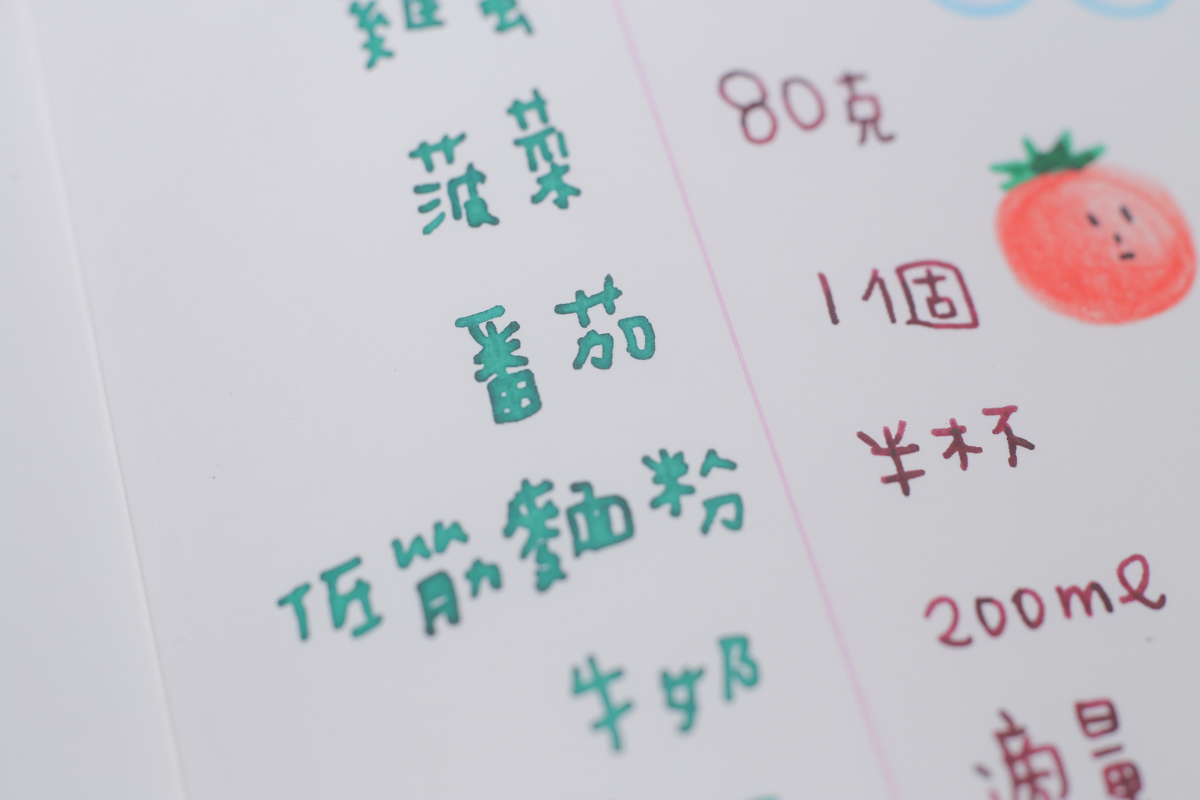 菠菜 80克
番茄 1個
低筋麵粉 半杯
牛奶 200ml
適量